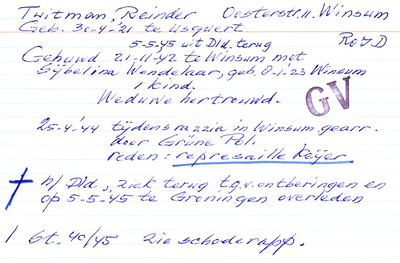 Tuitman, Reinder Oosterstr. 11. Winsum
Geb. 30-4-'21 te Usquert
5-5-45 uit Dld. terug RoID
Gehuwd 21-11-42 te Winsum met
Sijbelina Wendelaar, geb. 8-1-23 Winsum
1 kind.
Weduwe hertrouwd.
GV
25-4-'44 tijdens razzia in Winsum gearr.
door Grüne Pol.
reden: represaille Keijer
n/ Dld., ziek terug t.g.v. ontberingen en
op 5-5-45 te Groningen overleden
1 Gt. 40/45 zie schoderapp.